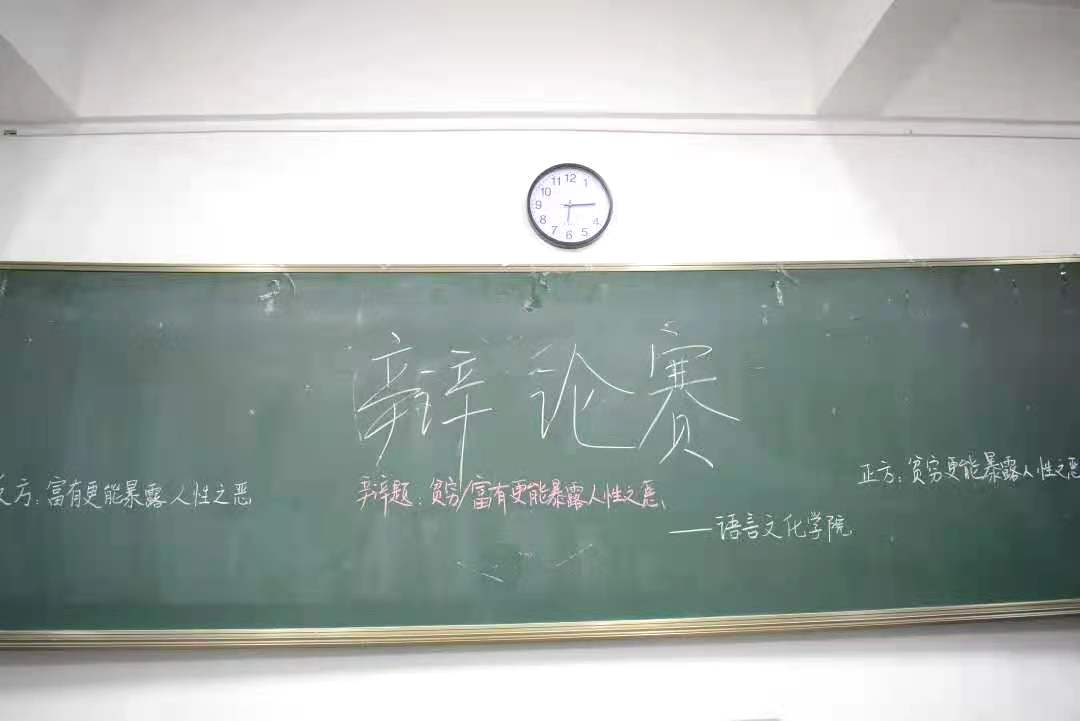 12
11 1
10
9
8 4
7 5
6
辩论赛
反方:富有更能暴露人性之恶
辩题:贫穷/富有更能暴露人性之恶
正方:贫穷更能暴露人性之恶
——语言文化学院